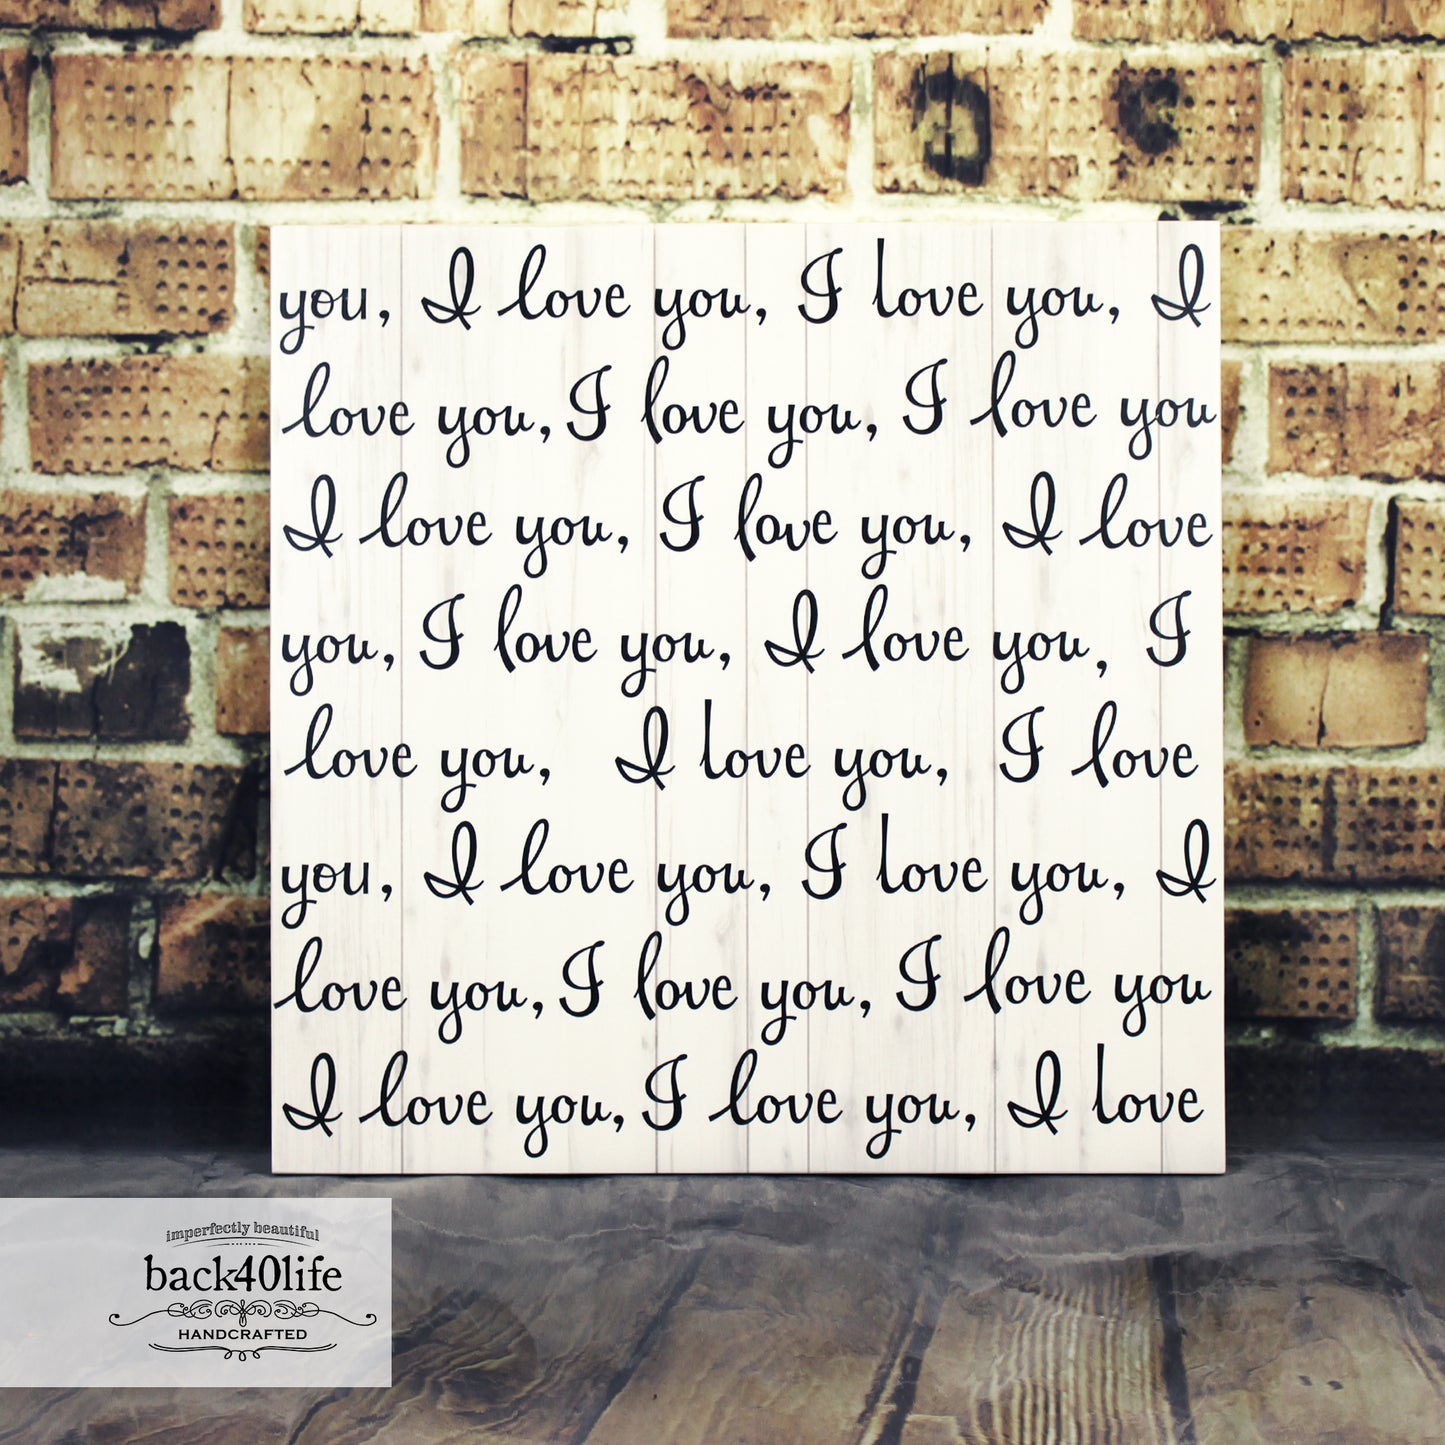 you, I love you, I love you, I
love you, I love you, I love you
I love you, I love you, I love
you, I love you, I love you, I
love you, I love you, I love
you, I love you, I love you, I
love you, I love you, I love you
I love you, I love you, I love
imperfectly beautiful
back40life
HANDCRAFTED